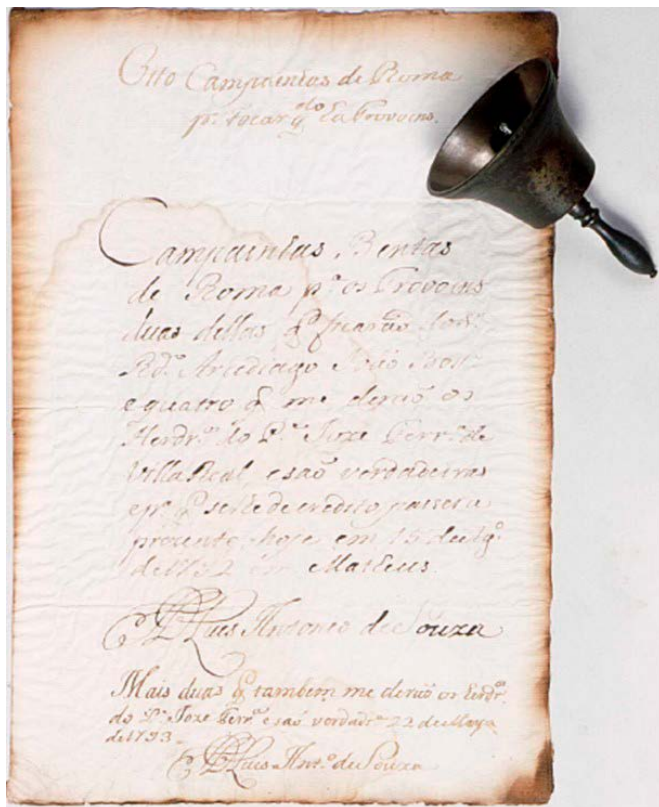 Otto Campainhas de Roma
pª. tocar qdo há Trovoens.
Campainhas Bentas
de Roma pª. os Trovoens
duas dellas q̃ ficarão do
Rdº. Arcediago João
e quatro q̃ me derão os
Herdrºs. do Pe. Joze Ferrª. de
Villa Real, e saõ verdadeiras
e pª. q̃ se lhe de credito passei a
prezente, hoje em 15 de
de 1792 em Matheus.
D. Luis Antonio de Souza
Mais duas q̃ tambem me derão os herdrºs.
do Pe. Joze Ferrª. e saõ verdadrªs 22 de Mayo
de 1793
D. Luis Antº. de Souza